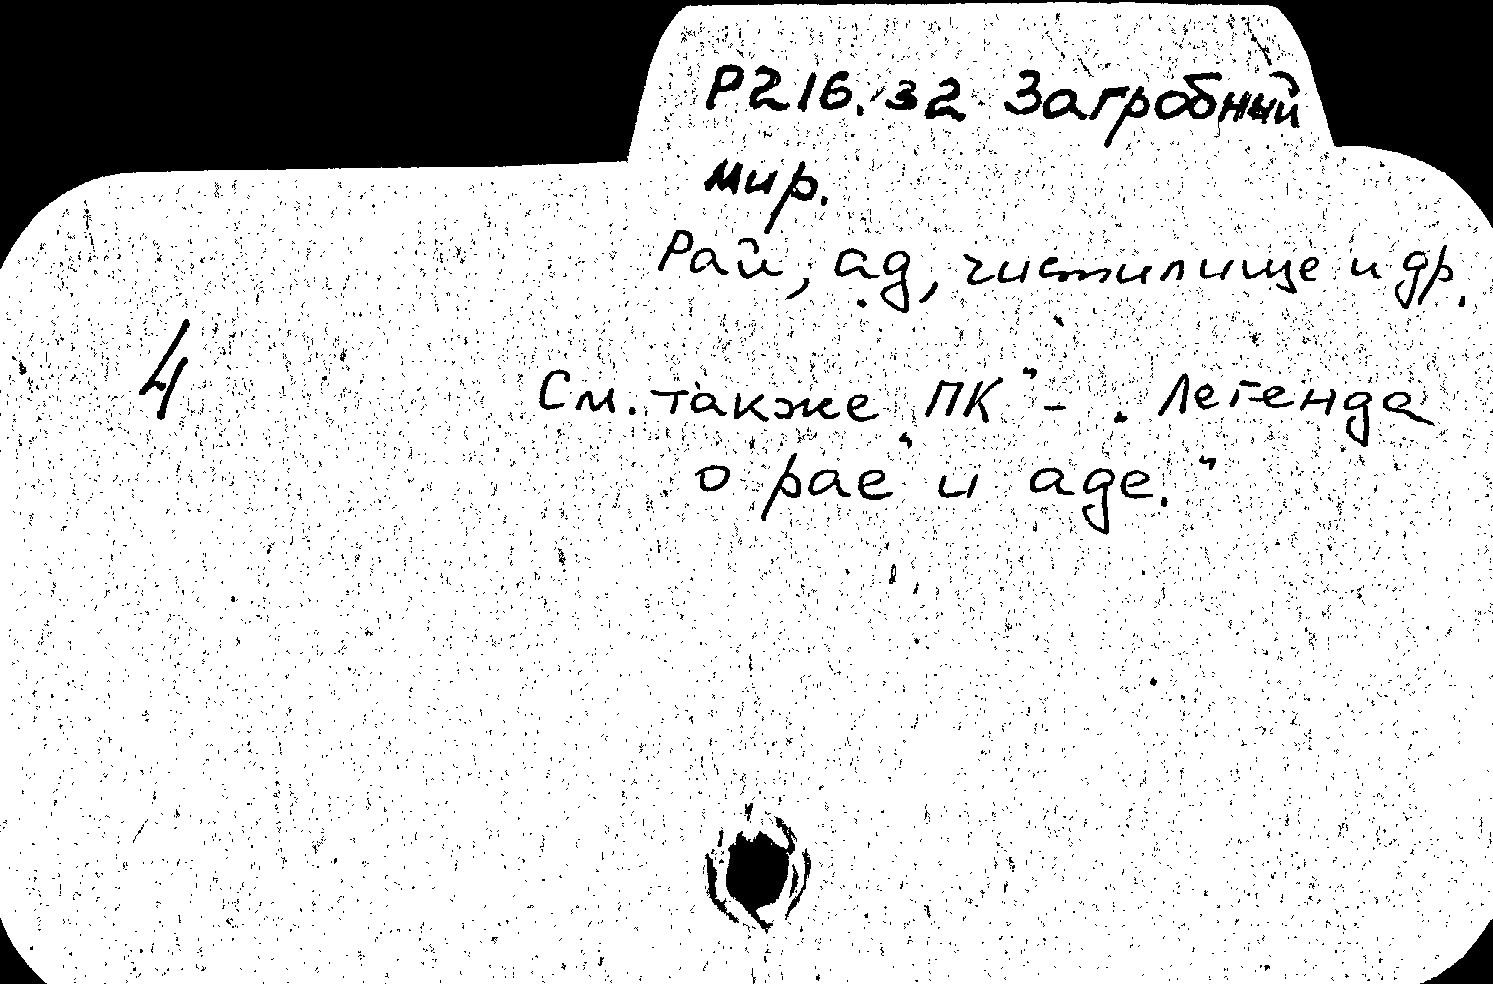 Р216.32 Загробный
мир.
Рай, ад, чистилище и др.
4
См. также "ПК" - "Легенда
о рае" и аде."